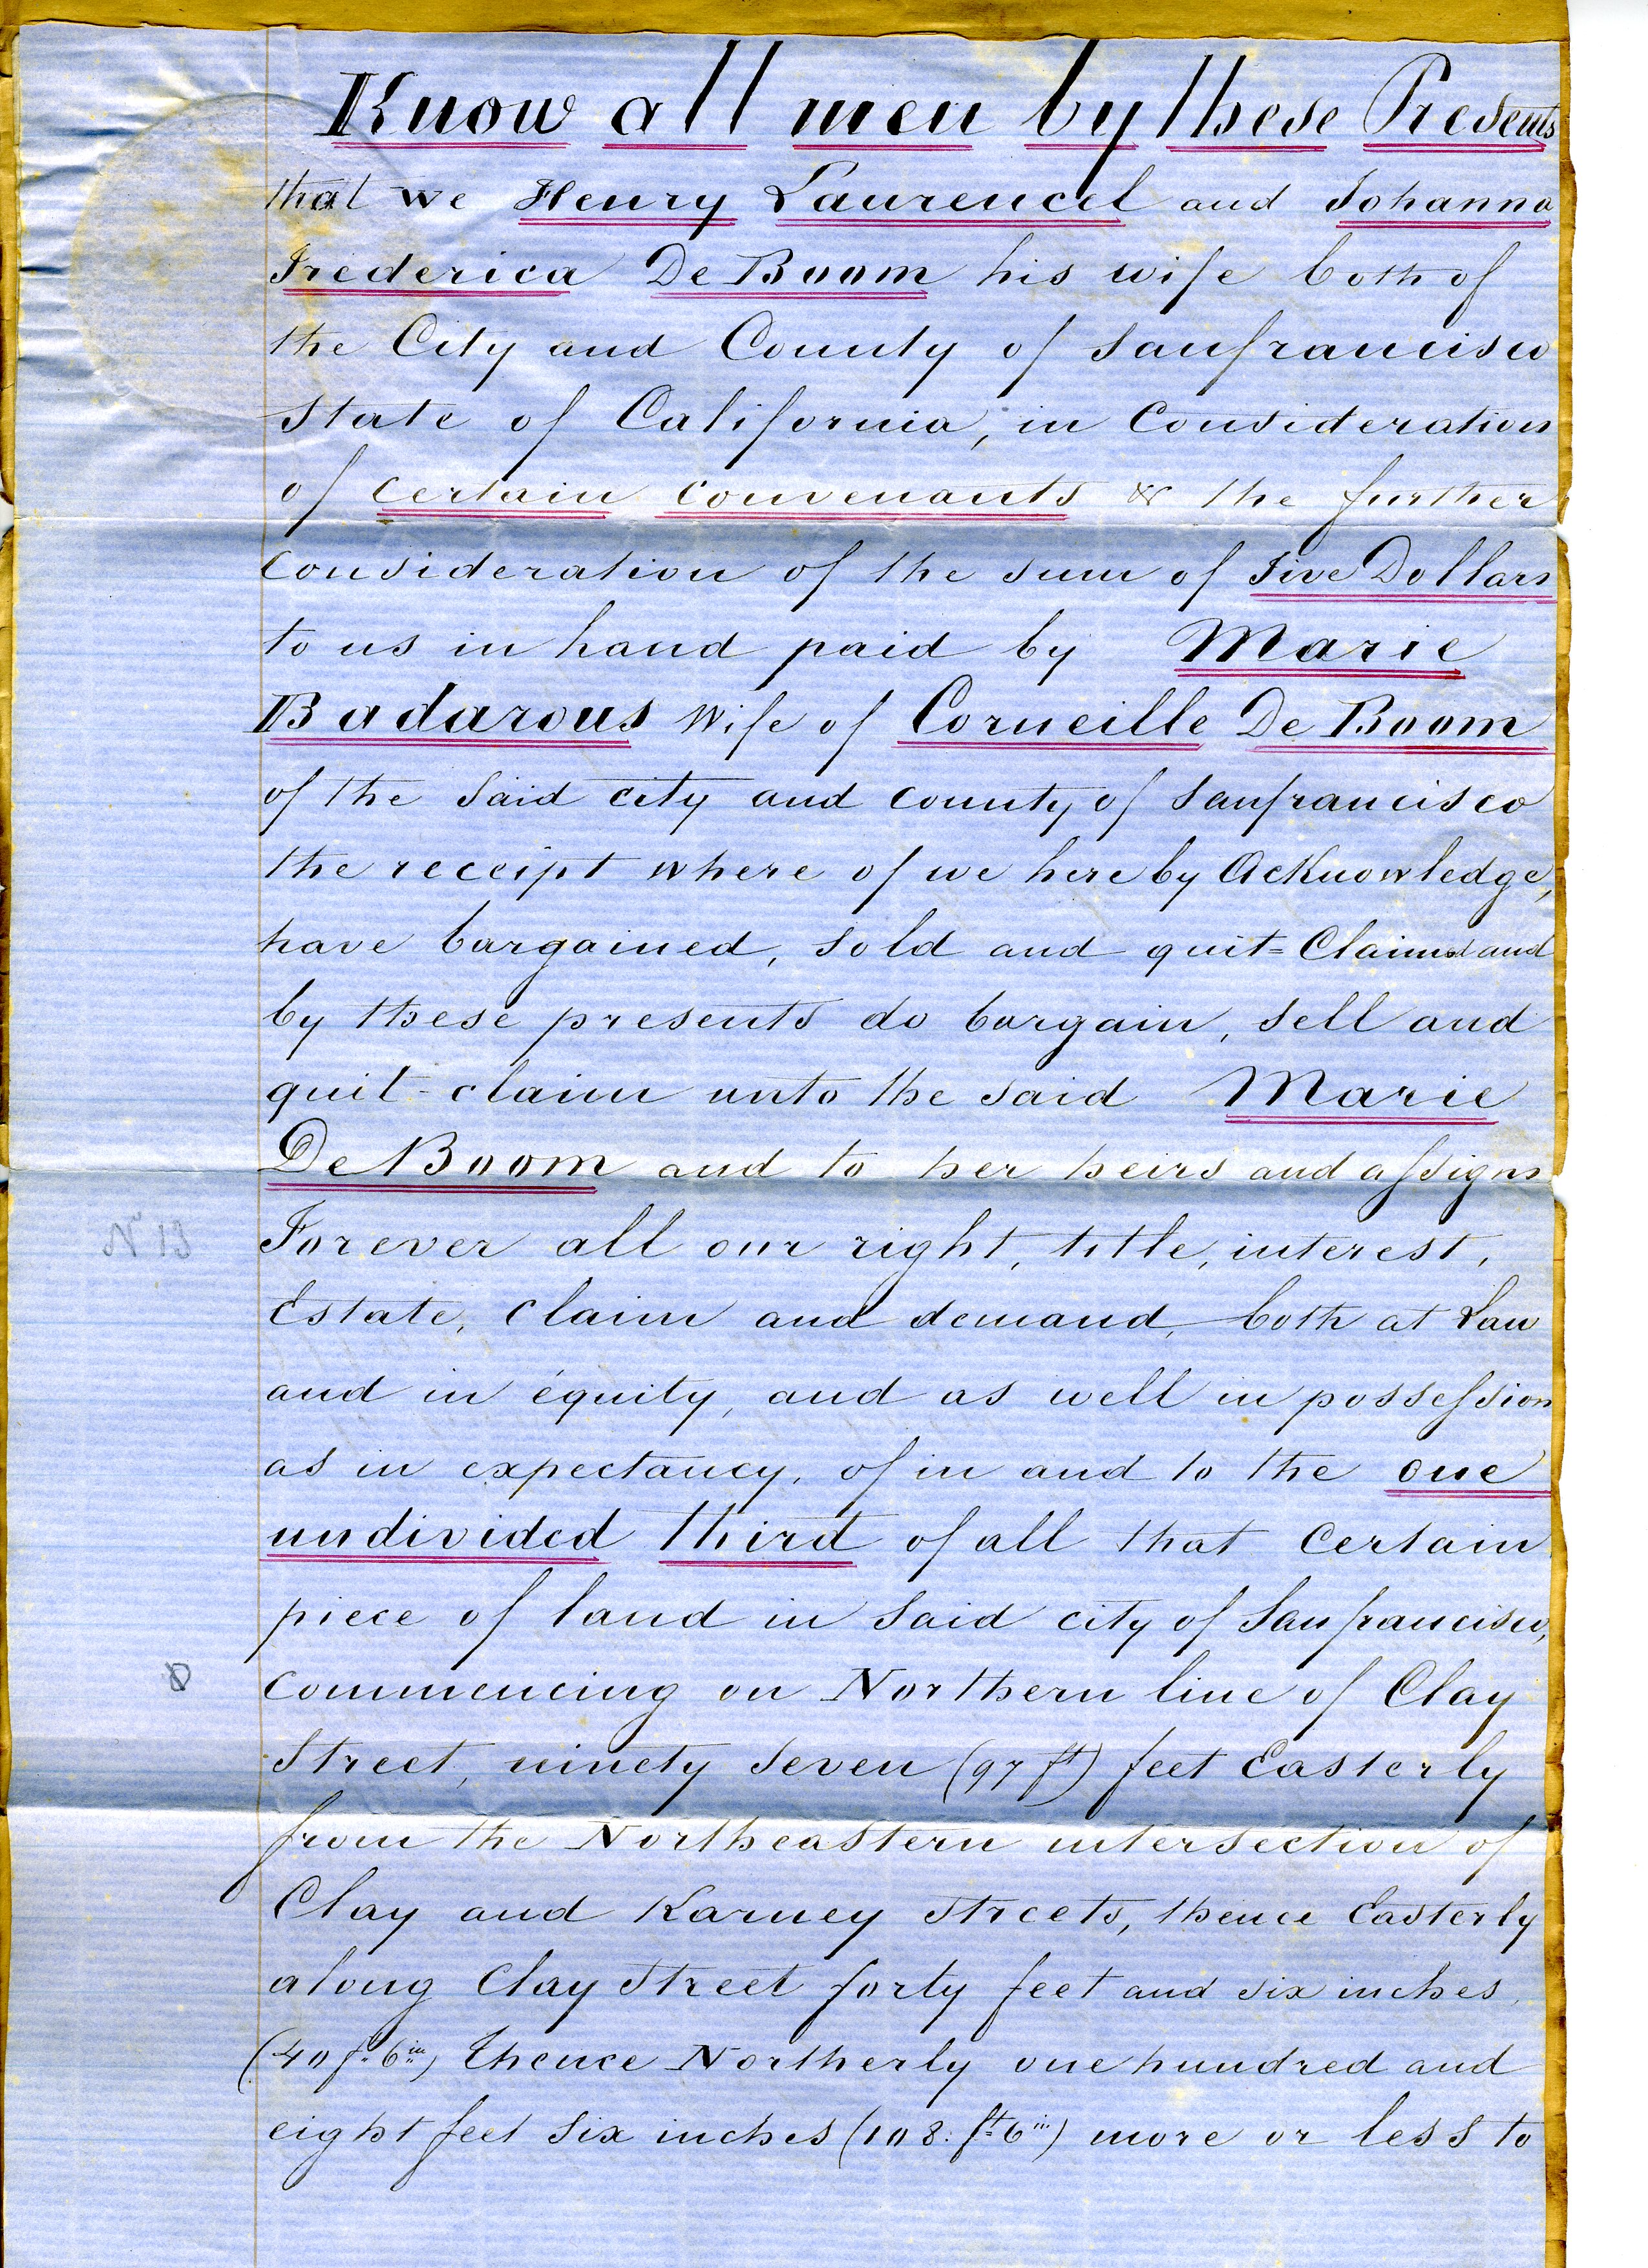 Know all men by these Presents
that we Henry Laurencel and Johanna
Frederica De Boom his wife both of
the City and County of Sanfrancisco
State of California, in Consideration
of certain convenants & the further
consideration of the sum of Five Dollars
to us in hand paid by Marie
Badarous wife of Corneille De Boom
of the said city and county of Sanfrancisco
the receipt where of we here by Acknowledge,
have bargained, sold and quit=Claimed and
by these presents do bargain, sell and
quit-claim unto the said Marie
De Boom and to her heirs and assigns
N° 13
Forever all our right, title, interest,
Estate, claim and demand, both at Law
and in équity, and as well in possession
as in expectancy, of in and to the one
undivided third of all that certain
piece of land in said city of Sanfrancisco,
commencing on Northern line of Clay
Street, ninety seven (97 ft) feet Easterly
from the Northeastern intersection of
Clay and Karney streets, thence Easterly
along Clay Street forty feet and six inches,
(40 f. 6 in) thence Northerly one hundred and
eight feet six inches (108. ft 6 in) more or less to